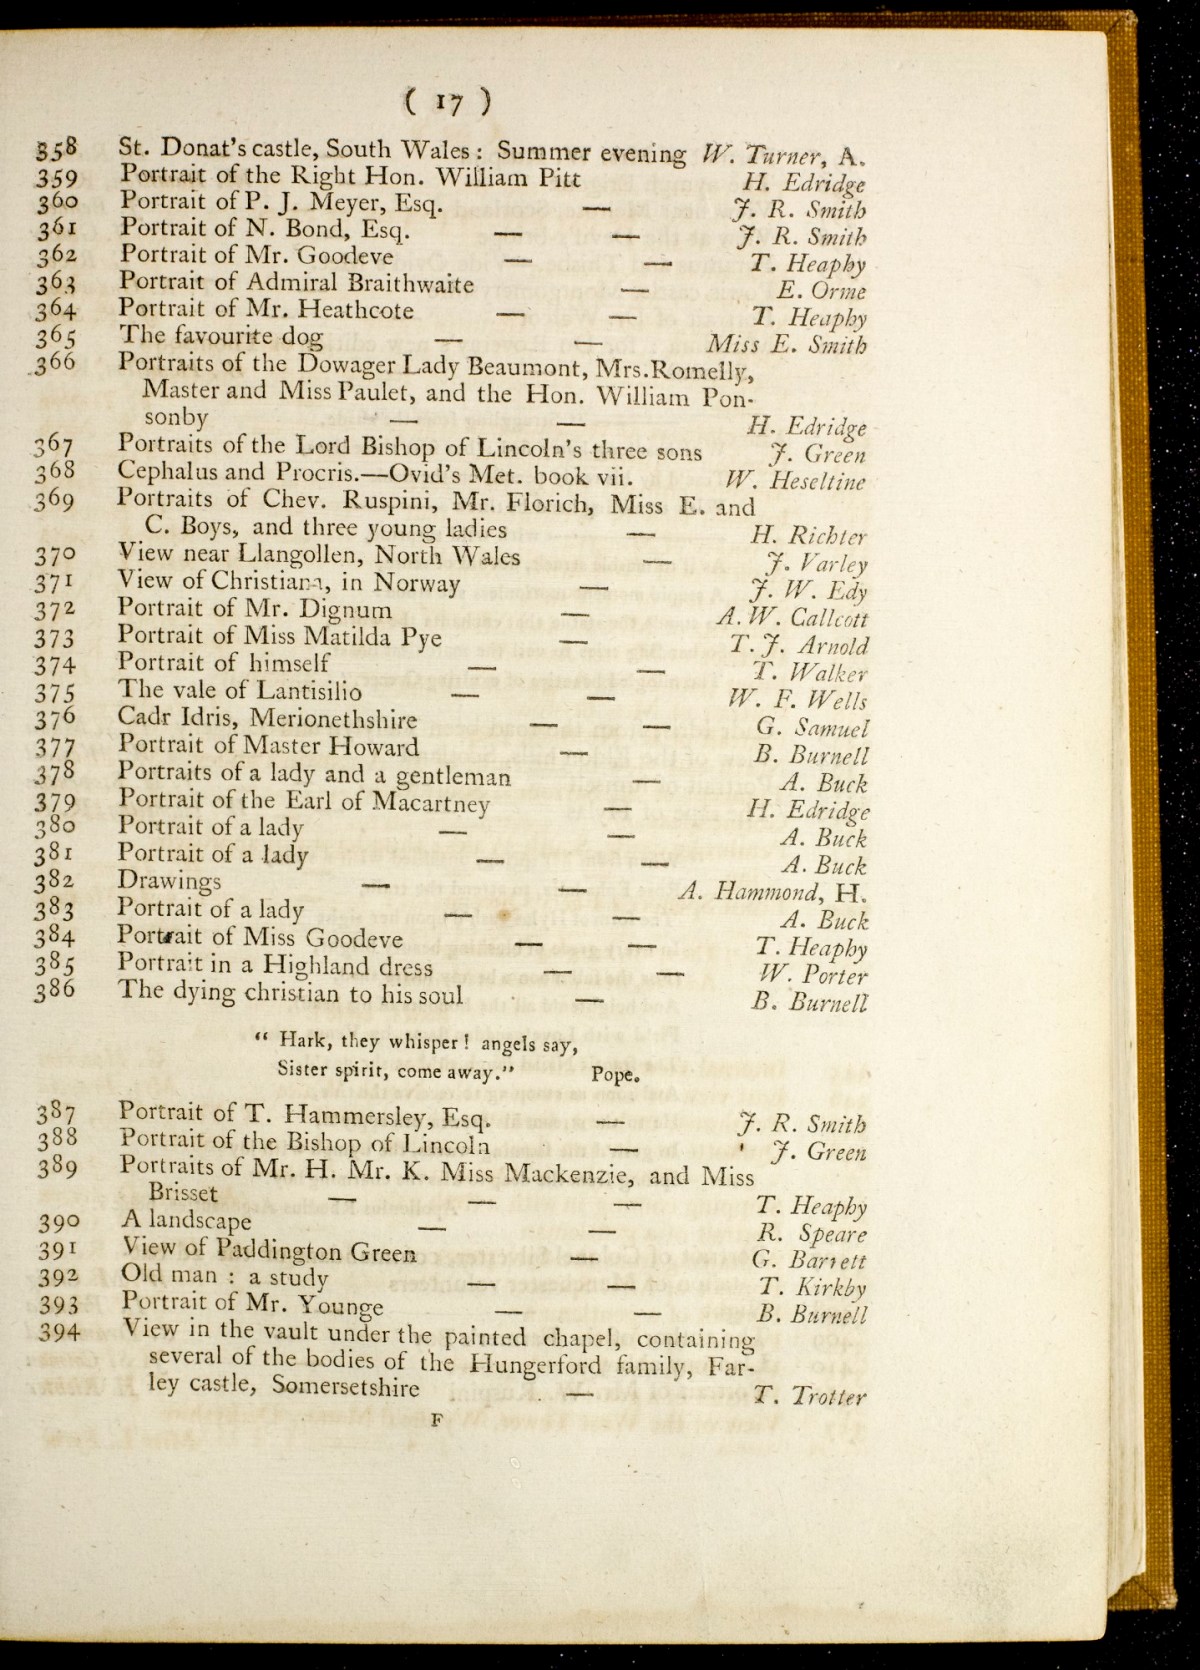 ( 17 )
358 St. Donat's castle, South Wales: Summer evening W. Turner, A.
359 Portrait of the Right Hon. William Pitt H. Edridge
360 Portrait of P. J. Meyer, Esq. — J. R. Smith
361 Portrait of N. Bond, Esq. — — J. R. Smith
362 Portrait of Mr. Goodeve — — T. Heaphy
363 Portrait of Admiral Braithwaite — E. Orme
364 Portrait of Mr. Heathcote — — T. Heaphy
365 The favourite dog — — Miss E. Smith
366 Portraits of the Dowager Lady Beaumont, Mrs. Romelly,
Master and Miss Paulet, and the Hon. William Pon-
sonby — — H. Edridge
367 Portraits of the Lord Bishop of Lincoln's three sons J. Green
368 Cephalus and Procris.—Ovid's Met. book vii. W. Heseltine
369 Portraits of Chev. Ruspini, Mr. Florich, Miss E. and
C. Boys, and three young ladies — H. Richter
370 View near Llangollen, North Wales — J. Varley
371 View of Christiana, in Norway — J. W. Edy
372 Portrait of Mr. Dignum — A. W. Callcott
373 Portrait of Miss Matilda Pye — T. J. Arnold
374 Portrait of himself — — T. Walker
375 The vale of Lantisilio — — W. F. Wells
376 Cadr Idris, Merionethshire — — G. Samuel
377 Portrait of Master Howard — B. Burnell
378 Portraits of a lady and a gentleman — A. Buck
379 Portrait of the Earl of Macartney — H. Edridge
380 Portrait of a lady — — A. Buck
381 Portrait of a lady — — A. Buck
382 Drawings — — A. Hammond, H.
383 Portrait of a lady — — A. Buck
384 Portrait of Miss Goodeve — — T. Heaphy
385 Portrait in a Highland dress — — W. Porter
386 The dying christian to his soul — B. Burnell
“ Hark, they whisper! angels say,
Sister spirit, come away.” Pope.
387 Portrait of T. Hammersley, Esq. — J. R. Smith
388 Portrait of the Bishop of Lincoln — J. Green
389 Portraits of Mr. H. Mr. K. Miss Mackenzie, and Miss
Brisset — — — T. Heaphy
390 A landscape — — R. Speare
391 View of Paddington Green — G. Barrett
392 Old man : a study — — T. Kirkby
393 Portrait of Mr. Younge — — B. Burnell
394 View in the vault under the painted chapel, containing
several of the bodies of the Hungerford family, Far-
ley castle, Somersetshire — T. Trotter
F